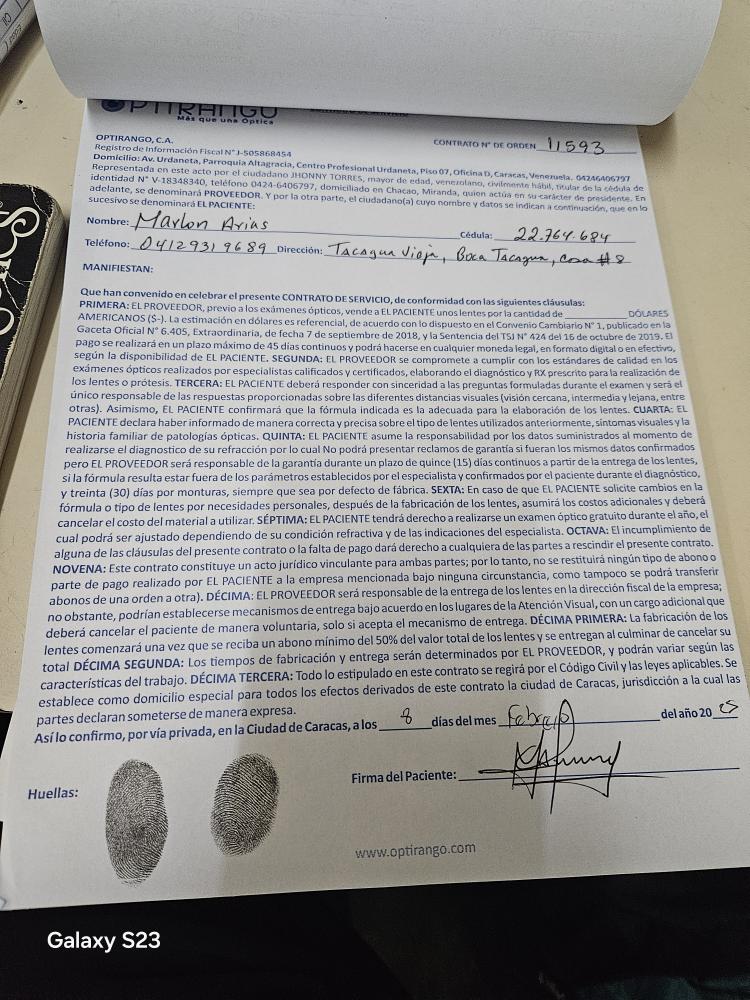 OPTIRANGO
Más que una Óptica
OPTIRANGO, C.A.
CONTRATO N° DE ORDEN 11593
Registro de Información Fiscal N° J-505868454
Domicilio: Av. Urdaneta, Parroquia Altagracia, Centro Profesional Urdaneta, Piso 07, Oficina D, Caracas, Venezuela. 04246406797
Representada en este acto por el ciudadano JHONNY TORRES, mayor de edad, venezolano, civilmente hábil, titular de la cédula de
identidad N° V-18348340, teléfono 0424-6406797, domiciliado en Chacao, Miranda, quien actúa en su carácter de presidente. En
adelante, se denominará PROVEEDOR. Y por la otra parte, el ciudadano(a) cuyo nombre y datos se indican a continuación, que en lo
sucesivo se denominará EL PACIENTE:
Nombre: Marlon Arias Cédula: 22.764.684
Teléfono: 04129319689 Dirección: Tacagua Vieja, Boca Tacagua, casa #8
MANIFIESTAN:
Que han convenido en celebrar el presente CONTRATO DE SERVICIO, de conformidad con las siguientes cláusulas:
PRIMERA: EL PROVEEDOR, previo a los exámenes ópticos, vende a EL PACIENTE unos lentes por la cantidad de ____________ DÓLARES
AMERICANOS ($-). La estimación en dólares es referencial, de acuerdo con lo dispuesto en el Convenio Cambiario N° 1, publicado en la
Gaceta Oficial N° 6.405, Extraordinaria, de fecha 7 de septiembre de 2018, y la Sentencia del TSJ N° 424 del 16 de octubre de 2019. El
pago se realizará en un plazo máximo de 45 días continuos y podrá hacerse en cualquier moneda legal, en formato digital o en efectivo,
según la disponibilidad de EL PACIENTE. SEGUNDA: EL PROVEEDOR se compromete a cumplir con los estándares de calidad en los
exámenes ópticos realizados por especialistas calificados y certificados, elaborando el diagnóstico y RX prescrito para la realización de
los lentes o prótesis. TERCERA: EL PACIENTE deberá responder con sinceridad a las preguntas formuladas durante el examen y será el
único responsable de las respuestas proporcionadas sobre las diferentes distancias visuales (visión cercana, intermedia y lejana, entre
otras). Asimismo, EL PACIENTE confirmará que la fórmula indicada es la adecuada para la elaboración de los lentes. CUARTA: EL
PACIENTE declara haber informado de manera correcta y precisa sobre el tipo de lentes utilizados anteriormente, síntomas visuales y la
historia familiar de patologías ópticas. QUINTA: EL PACIENTE asume la responsabilidad por los datos suministrados al momento de
realizarse el diagnostico de su refracción por lo cual No podrá presentar reclamos de garantía si fueran los mismos datos confirmados
pero EL PROVEEDOR será responsable de la garantía durante un plazo de quince (15) días continuos a partir de la entrega de los lentes,
si la fórmula resulta estar fuera de los parámetros establecidos por el especialista y confirmados por el paciente durante el diagnóstico,
y treinta (30) días por monturas, siempre que sea por defecto de fábrica. SEXTA: En caso de que EL PACIENTE solicite cambios en la
fórmula o tipo de lentes por necesidades personales, después de la fabricación de los lentes, asumirá los costos adicionales y deberá
cancelar el costo del material a utilizar. SÉPTIMA: EL PACIENTE tendrá derecho a realizarse un examen óptico gratuito durante el año, el
cual podrá ser ajustado dependiendo de su condición refractiva y de las indicaciones del especialista. OCTAVA: El incumplimiento de
alguna de las cláusulas del presente contrato o la falta de pago dará derecho a cualquiera de las partes a rescindir el presente contrato.
NOVENA: Este contrato constituye un acto jurídico vinculante para ambas partes; por lo tanto, no se restituirá ningún tipo de abono o
parte de pago realizado por EL PACIENTE a la empresa mencionada bajo ninguna circunstancia, como tampoco se podrá transferir
abonos de una orden a otra). DÉCIMA: EL PROVEEDOR será responsable de la entrega de los lentes en la dirección fiscal de la empresa;
no obstante, podrían establecerse mecanismos de entrega bajo acuerdo en los lugares de la Atención Visual, con un cargo adicional que
deberá cancelar el paciente de manera voluntaria, solo si acepta el mecanismo de entrega. DÉCIMA PRIMERA: La fabricación de los
lentes comenzará una vez que se reciba un abono mínimo del 50% del valor total de los lentes y se entregan al culminar de cancelar su
total DÉCIMA SEGUNDA: Los tiempos de fabricación y entrega serán determinados por EL PROVEEDOR, y podrán variar según las
características del trabajo. DÉCIMA TERCERA: Todo lo estipulado en este contrato se regirá por el Código Civil y las leyes aplicables. Se
establece como domicilio especial para todos los efectos derivados de este contrato la ciudad de Caracas, jurisdicción a la cual las
partes declaran someterse de manera expresa.
Así lo confirmo, por vía privada, en la Ciudad de Caracas, a los 8 días del mes Febrero del año 20 25
Firma del Paciente:
Huellas:
www.optirango.com
Galaxy S23